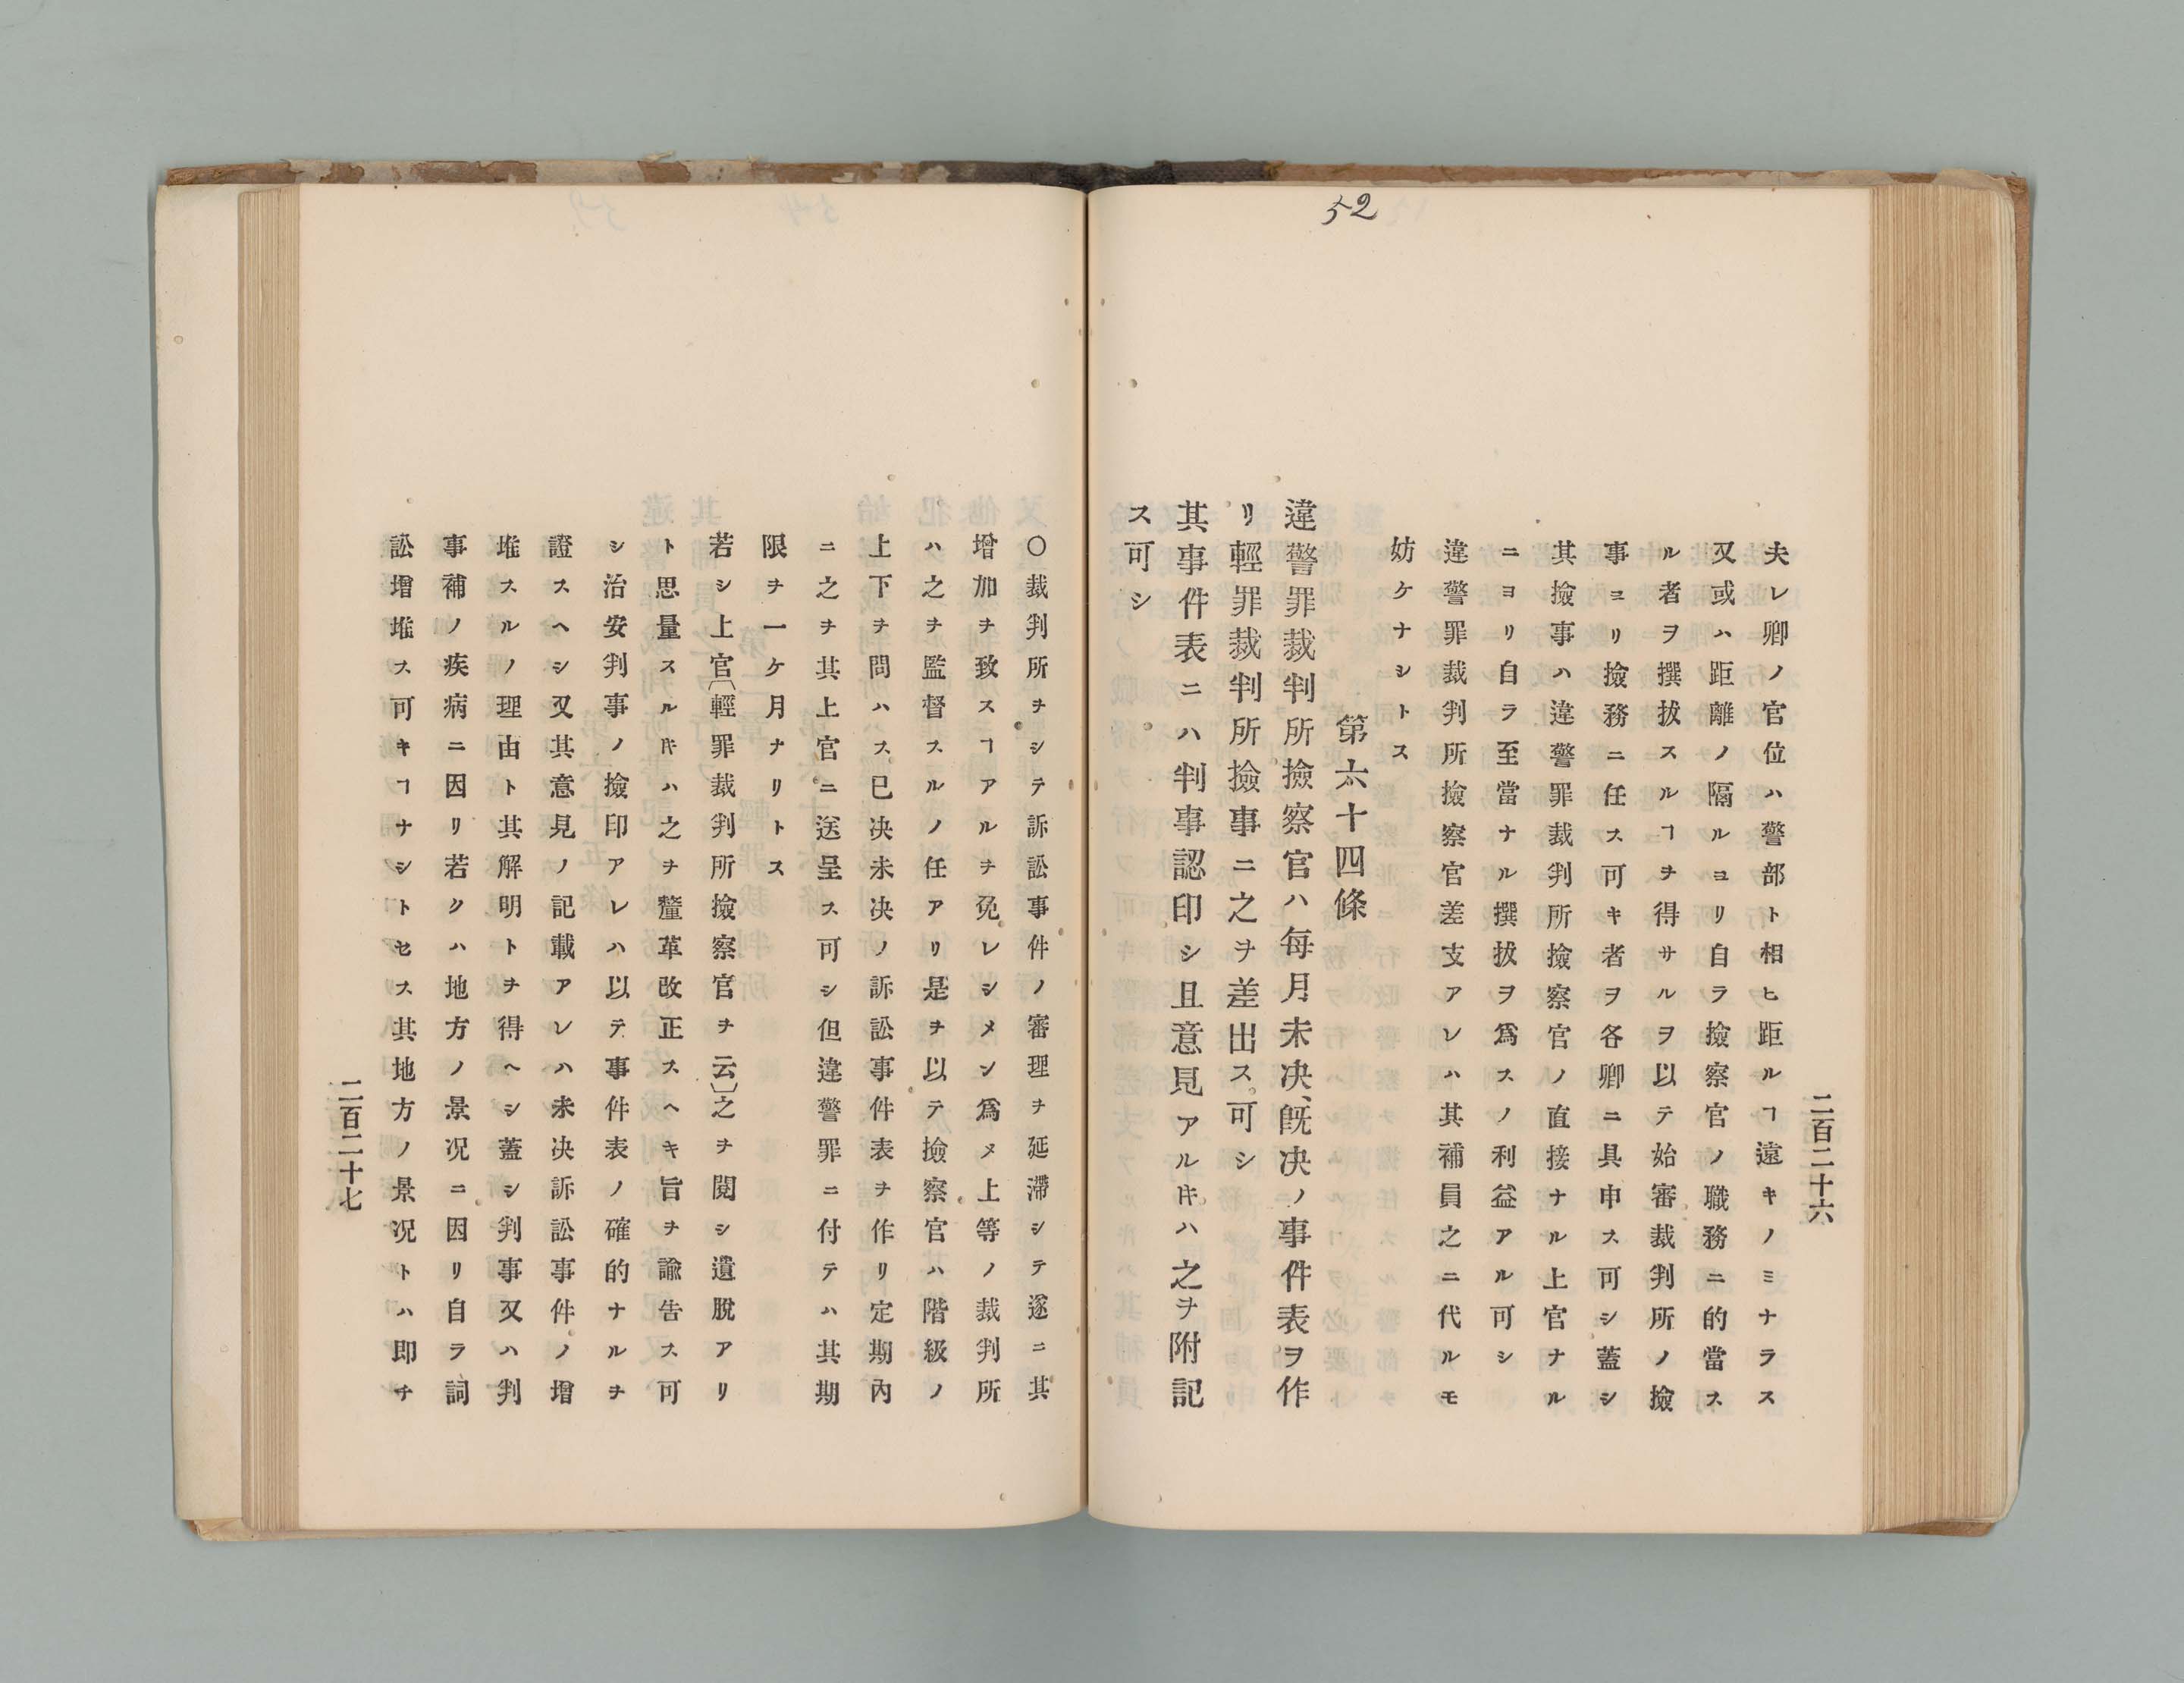 52
二百二十六
夫レ卿ノ官位ハ警部ト相ヒ距ルヿ遠キノミナラス
又或ハ距離ノ隔ルヨリ自ラ撿察官ノ職務ニ的當ス
ル者ヲ撰拔スルヿヲ得サルヲ以テ始審裁判所ノ撿
事ヨリ撿務ニ任ス可キ者ヲ各卿ニ具申ス可シ蓋シ
其撿事ハ違警罪裁判所撿察官ノ直接ナル上官ナル
ニヨリ自ラ至當ナル撰拔ヲ爲スノ利益アル可シ
違警罪裁判所撿察官差支アレハ其補員之ニ代ルモ
妨ケナシトス
第六十四條
違警罪裁判所撿察官ハ每月未决、既决ノ事件表ヲ作
リ輕罪裁判所撿事ニ之ヲ差出ス可シ
其事件表ニハ判事認印シ且意見アルキハ之ヲ附記
ス可シ
〇裁判所ヲシテ訴訟事件ノ審理ヲ延滯シテ遂ニ其
增加ヲ致スヿアルヲ免レシメン爲メ上等ノ裁判所
ハ之ヲ監督スルノ任アリ是ヲ以テ撿察官ハ階級ノ
上下ヲ問ハス已决未决ノ訴訟事件表ヲ作リ定期內
ニ之ヲ其上官ニ送呈ス可シ但違警罪ニ付テハ其期
限ヲ一ケ月ナリトス
若シ上官〔輕罪裁判所撿察官ヲ云〕之ヲ閱シ遺脫アリ
ト思量スルキハ之ヲ釐革改正スヘキ旨ヲ諭告ス可
シ治安判事ノ撿印アレハ以テ事件表ノ確的ナルヲ
證スヘシ又其意見ノ記載アレハ未决訴訟事件ノ增
堆スルノ理由ト其解明トヲ得ヘシ蓋シ判事又ハ判
事補ノ疾病ニ因リ若クハ地方ノ景况ニ因リ自ラ詞
訟增堆ス可キヿナシトセス其地方ノ景况トハ即チ
二百二十七